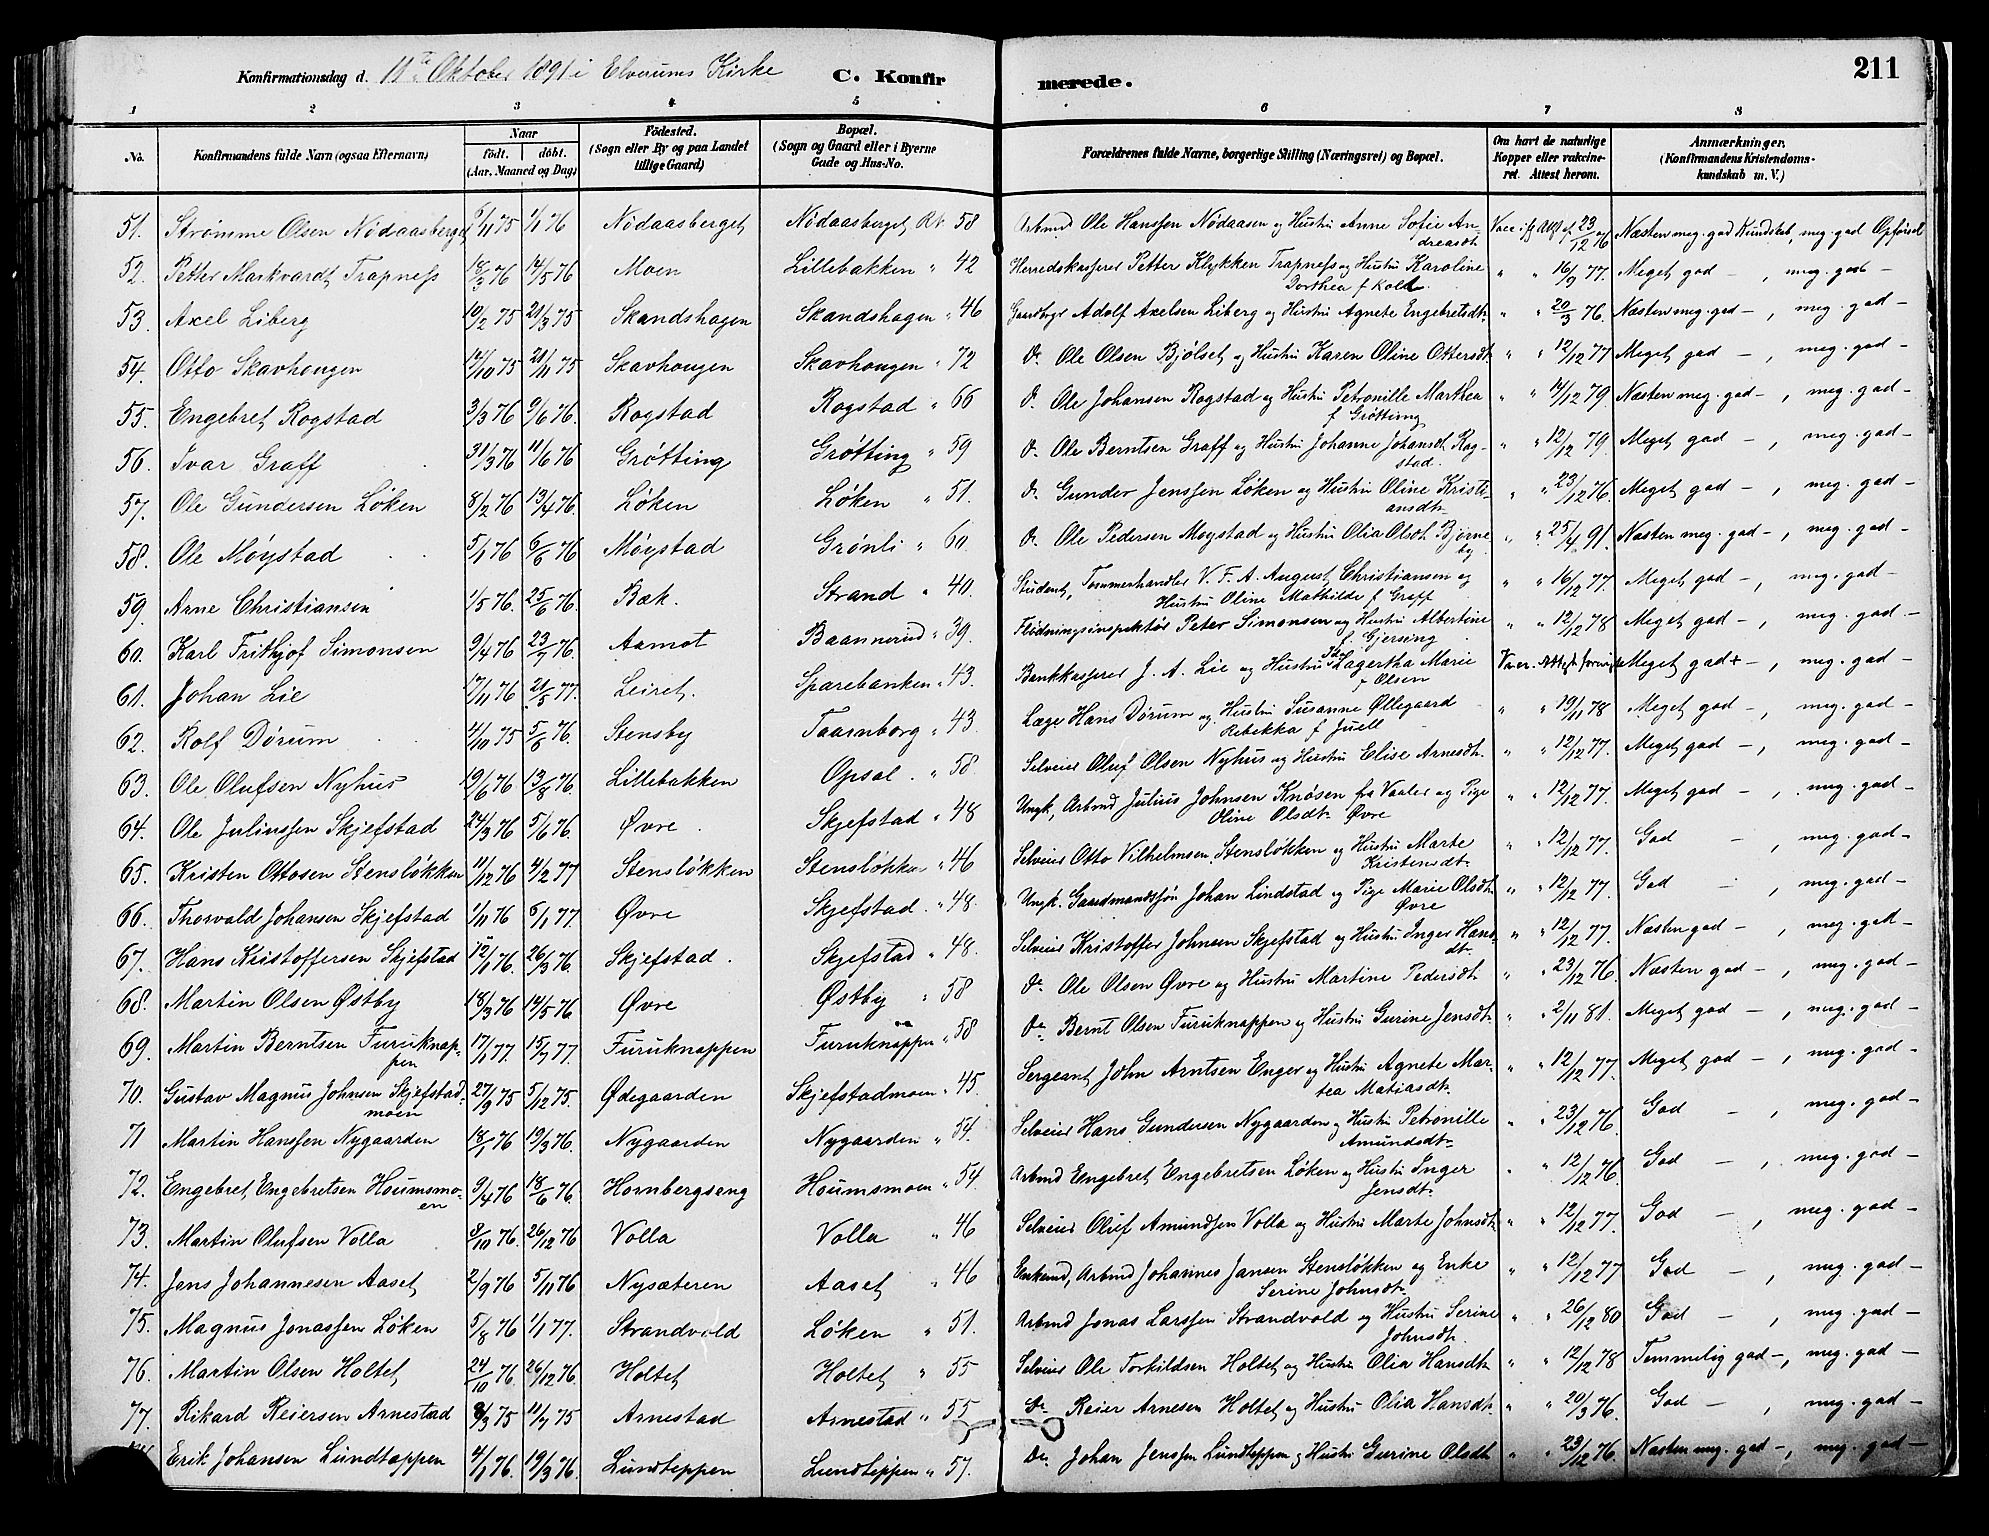 Konfirmationsdag d. 11te Oktober 1891 i Elverums Kirke C. Konfirmerede. 211
1 2 3 4 5 6 7 8
No. Konfirmandens fulde Navn (ogsaa Efternavn) Naar født. døbt. (Aar, Maaned og Dag) Fødested. (Sogn eller By og paa Landet tillige Gaard) Bopæl. (Sogn og Gaard eller i Byerne Gade og Hus-No. Forældrenes fulde Navne, borgerlige Stilling (Næringsvei) og Bopæl. Om havt de naturlige Kopper eller vakcineret. Attest herom. Anmærkninger. (Konfirmandens Kristendomskundskab m. V.)
51. Strømme Olsen Nødaasberget 5/11 75 1/1 76 Nødaasberget Nødaasberget Rt. 58 Arbmd Ole Hanssen Nødaasen og Hustru Anne Sofie Andreasdt. 23/12 76 Næsten meg. god Kundskab, meg. god Opførsel
52. Petter Markvardt Trapness 18/3 76 14/5 76 Moen Lillebakken " 42 Herredskasserer Petter Klykken Trapness og Hustru Karoline Dorthea f. Kold " " 16/9 77. Meget god – , meg. god –
53. Axel Liberg 10/2 75 21/3 75 Skandshagen Skandshagen " 46 Gaardbgr Adolf Axelsen Liberg og Hustru Agnete Engebretsdt. " " 20/3 76. Næsten meg. god – , meg. god –
54. Otto Skavhougen 14/10 75 21/11 75 Skavhougen Skavhougen " 72 Do. Ole Olsen Bjølset og Hustru Karen Oline Ottersdt. " " 12/12 77 Meget god – , meg. god –
55. Engebret Rogstad 3/3 76 9/6 76. Rogstad Rogstad " 66 Do. Ole Johansen Rogstad og Hustru Petronille Marthea f. Grøtting " " 14/12 79. Næsten meg. god – , meg. god –
56. Ivar Graff 31/3 76 11/6 76 Grøtting Grøtting " 59 Do. Ole Berntsen Graff og Hustru Johanne Johansdt. Rogstad. " " 12/12 79. Meget god – , meg. god –
57. Ole Gundersen Løken 8/2 76 13/4 76. Løken Løken " 51. Do. Gunder Jenssen Løken og Hustru Oline Kristiansdt. " " 23/12 76. Meget god – , meg. god –
58. Ole Møystad 5/1 76 6/6 76 Møystad Grønli " 60. Do. Ole Pedersen Moystad og Hustru Olia Olsdt. Bjørneby " " 25/4 91. Næsten meg. god – , meg. god –
59. Arne Christiansen 1/5 76. 25/6 76. Bæk. Strand " 40. Student, Tømmerhandler V. F. A. August Christiansen og Hustru Oline Mathilde f. Graff " " 16/12 77. Meget god – , meg. god –
60. Karl Frithjof Simonsen 9/4 76 23/7 76. Aamot Baannerud " 39. Flødningsinspektør Peter Simonsen og Hustru Albertine f. Gjersing " " 12/12 78 Meget god – , meg. god –
61. Johan Lie 17/11 76 21/5 77. Leiret. Sparebanken " 43. Bankkasserer J. A. Lie og Hustru Lagertha Marie f. Olsen Meget god + – , meg. god –
62. Rolf Dørum 4/10 75 5/6 76. Stensby Taarnborg " 43 Læge Hans Dørum og Hustru Susanne Øllegaard Rebekka f. Juell " " 19/11 78 Meget god – , meg. god –
63. Ole Olufsen Nyhus 19/6 76 13/8 76. Lillebakken Opsal. " 58. Selveier Oluf Olsen Nyhus og Hustru Elise Arnesdt. " " 12/12 77. Meget god – , meg. god –
64. Ole Juliussen Skjefstad 24/3 76 5/6 76. Øvre Skjefstad " 48 Ungk., Arbmd Julius Johnsen Knøsen fra Vaaler og Pige Oline Olsdt. Øvre " " 12/12 77. Meget god – , meg. god –
65. Kristen Ottosen Stensløkken 11/12 76 4/2 77 Stensløkken Stensløkken " 46 Selveier Otto Vilhelmsen Stensløkken og Hustru Marte Kristensdt. " " 12/12 77. God – , meg. god –
66. Thorvald Johansen Skjefstad 1/11 76 6/1 77. Øvre Skjefstad. " 48. Ungk. Gaardmandssøn Johan Lindstad og Pige Marie Olsdt. Øvre " " 12/12 77. God – , meg. god –
67. Hans Kristoffersen Skjefstad 12/1 76. 26/3 76. Skjefstad. Skjefstad " 48. Selveier Kristoffer Johnsen Skjefstad og Hustru Inger Hansdt. " " 12/12 77. Næsten god – , meg. god –
68. Martin Olsen Østby 18/3 76 14/5 76. Øvre Østby " 58 Do. Ole Olsen Øvre og Hustru Martine Pedersdt. " " 23/12 76. Næsten god – , meg. god –
69. Martin Berntsen Furuknappen 17/1 77. 15/7 77. Furuknappen Furuknappen " 58 Do. Bernt Olsen Furuknappen og Hustru Gurine Jensdt. " " 2/11 81. Meget god – , meg. god –
70. Gustav Magnus Johnsen Skjefstadmoen 27/9 75 5/12 75. Ødegaarden Skjefstadmoen " 45. Sergeant John Arntsen Enger og Hustru Agnete Martea Matiasdt. " " 12/12 77. Meget god – , meg. god –
71 Martin Hanssen Nygaarden 18/1 76 19/3 76. Nygaarden Nygaarden " 54. Selveier Hans Gundersen Nygaarden og Hustru Petronille Amundsdt. " " 23/12 76. God – , meg. god –
72. Engebret Engebretsen Houmsmoen 9/4 76 18/6 76. Hornbergseng Houmsmoen " 54 Arbmd Engebret Engebretsen Løken og Hustru Inger Jensdt. " " 12/12 76. God – , meg. god –
73. Martin Olufsen Volla 8/10 76. 26/12 76 Volla Volla " 46 Selveier Oluf Amundsen Volla og Hustru Marte Johnsdt. " " 12/12 77. God – , meg. god –
74. Jens Johannesen Aaset 2/9 76 5/11 76 Nysæteren Aaset " 46 Enkemd, Arbmd Johannes Jansen Stensløkken og Enke Serine Johnsdt. " " 12/12 77 God – , meg. god –
75. Magnus Jonassen Løken 5/8 76 1/1 77. Strandvold Løken " 51. Arbmd Jonas Larssen Strandvold og Hustru Serine Johnsdt. " " 26/12 80 God – , meg. god –
76. Martin Olsen Holtet 24/10 76. 26/12 76. Holtet Holtet " 55 Selveier Ole Torkildsen Holtet og Hustru Olia Hansdt. " " 12/12 78 Temmelig god –, meg. god –
77. Rikard Reiersen Arnestad 8/3 75 11/7 75 Arnestad Arnestad " 55 Do. Reier Arnesen Holtet og Hustru Olia Hansdt. " " 20/3 76. God – , meg. god –
Erik Johansen Lundtappen 4/1 76. 19/3 76. Lundteppen Lundteppen " 57. Do. Johan Jenssen Lundteppen og Hustru Gurine Olsdt. " " 23/12 76. Næsten meg. god –, meg. god –